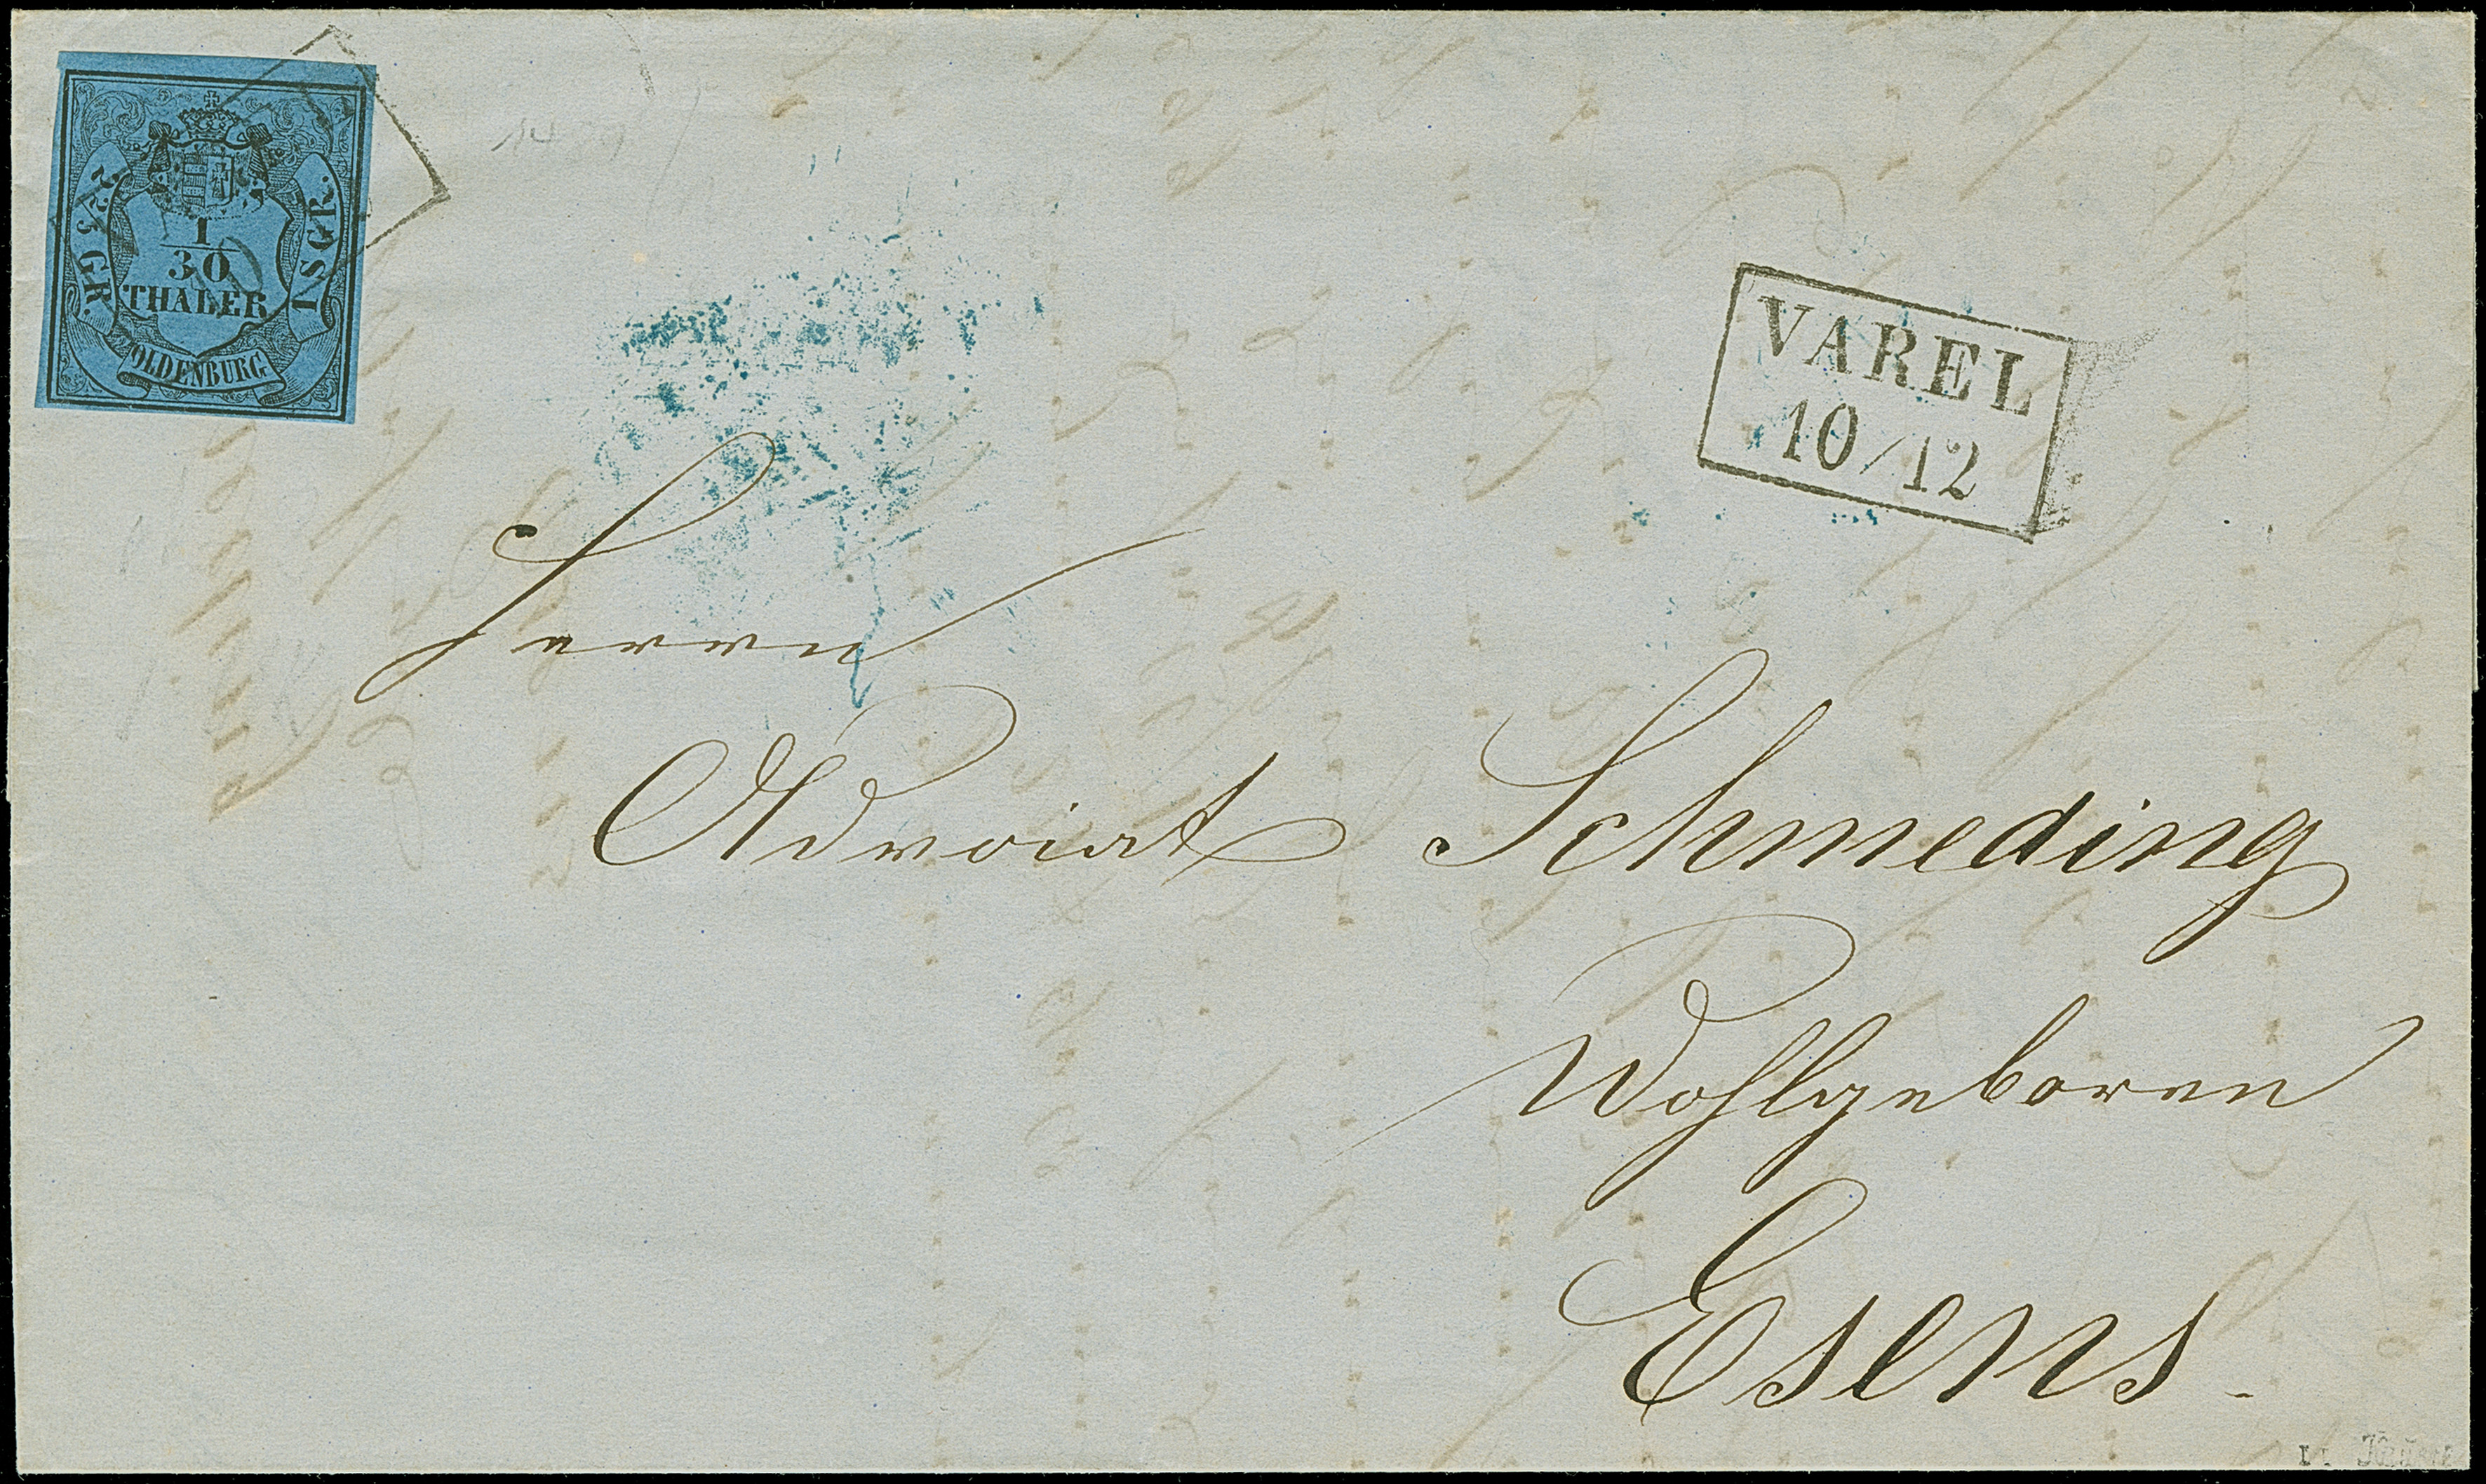 2 2/5 GR.
1
30
THALER
1 SGR.
OLDENBURG
VAREL
10/12
Herrn
Schmeding
Wohlgeboren
Esens.